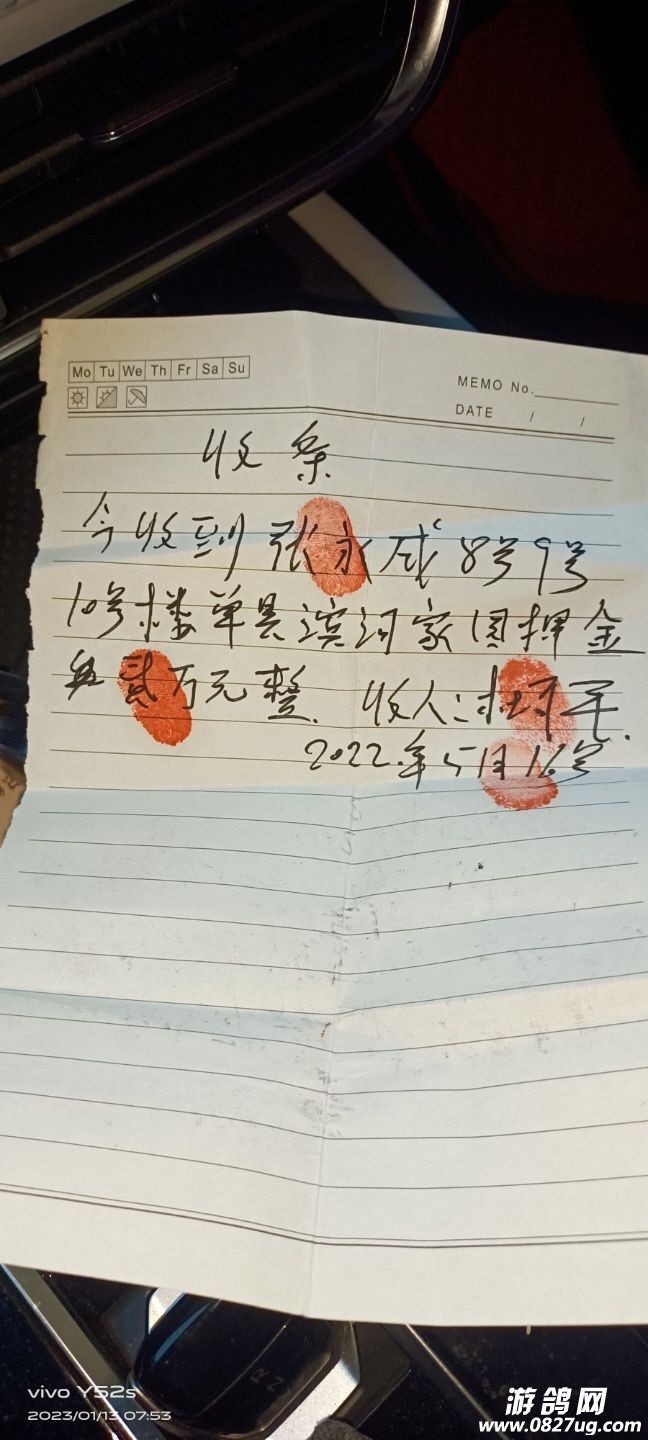 Mo Tu We Th Fr Sa Su
MEMO No.
DATE / /
收条
今收到张永成8号9号
10号楼单县滨河家园押金
贰万元整. 收人:
2022.年5月16号
vivo Y52s
2023/01/13 07:53
游鸽网
www.0827ug.com